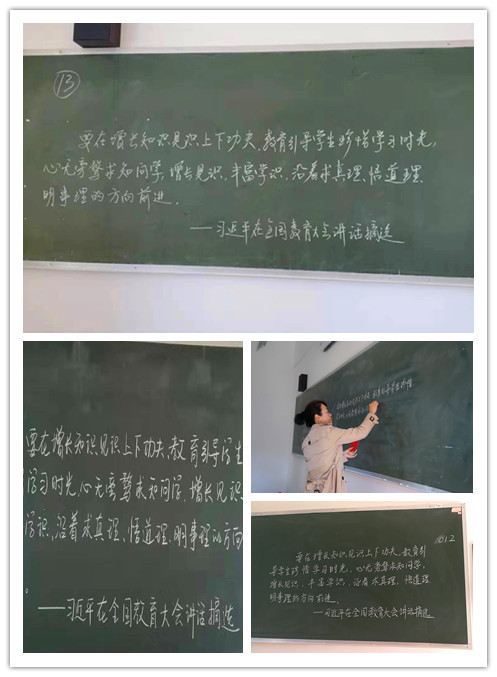 13
要在增长知识见识上下功夫,教育引导学生珍惜学习时光,
心无旁骛求知问学,增长见识,丰富学识,沿着求真理、悟道理、
明事理的方向前进。
——习近平在全国教育大会讲话摘选
要在增长知识见识上下功夫,教育引导学生
学习时光,心无旁骛求知问学,增长见识
学识,沿着求真理、悟道理、明事理的方向
——习近平在全国教育大会讲话摘选
12
要在增长知识见识上下功夫,教育引
导学生珍惜学习时光,心无旁骛求知问学,
增长见识,丰富学识,沿着求真理、悟道理、
明事理的方向前进。
——习近平在全国教育大会讲话摘选